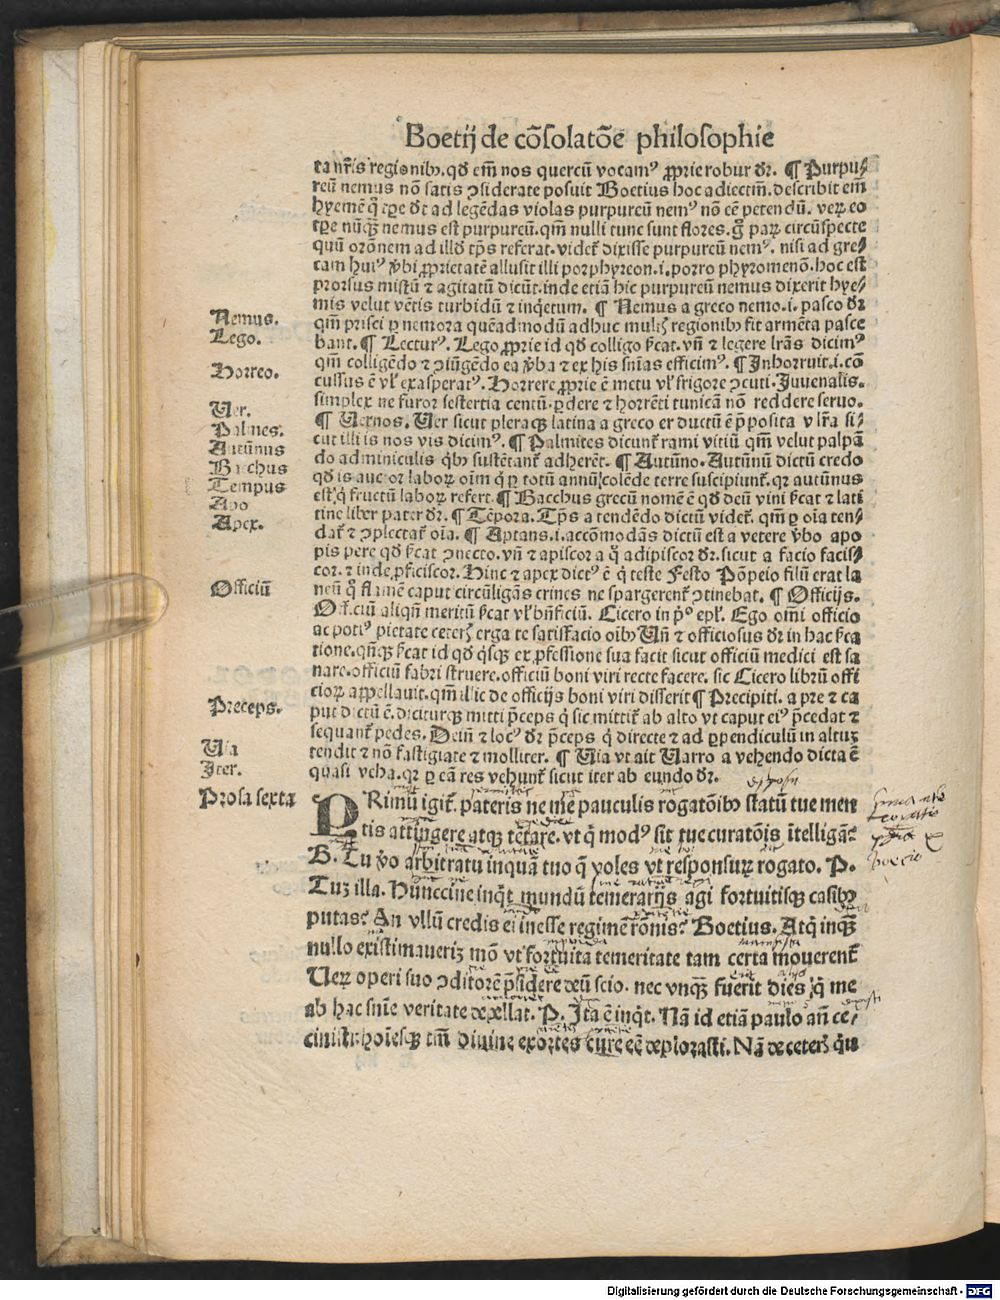 Boetij de cōsolatōe philosophie
ta nr̄is regionibꝰ. qđ em̄ nos quercū vocamꝰ ꝓprie robur dr̄. ¶ Purpu⸗
reū nemus nō satis ↄsiderate posuit Boetius hoc adiectiū. describit em̄
hyemē q̄ tꝑe vt ad legēdas violas purpureū nemꝰ nō eē petendū. veꝝ eo
tꝑe nūqꝫ nemus est purpureū. qm̄ nulli tunc sunt flores. paꝝ circūspecte
ad illđ tp̄s referat. videt̄ dixisse purpureū nemꝰ. nisi ad gre⸗
cam huiꝰ v̄bi ꝓprietatē allusit illi porphyreon .i. porro phyromenō. hoc est
prorsus mistū ⁊ agitatū dicūt. inde etiā hic purpureū nemus dixerit hye⸗
mis velut vētis turbidū ⁊ inq̇etum. ¶ Nemus a greco nemo .i. pasco dr̄
Nemus.
qm̄ prisci ꝑ nemora quēadmodū adhuc multꝭ regionibꝰ fit armēta pasce
Lego.
bant. ¶ Lecturꝰ. Lego ꝓprie id qđ colligo s̄cat. vn̄ ⁊ legere lr̄as dicimꝰ
qm̄ colligēdo ⁊ ↄiūgēdo ea v̄ba ⁊ ex his sn̄ias efficimꝰ. ¶ Inhorruit .i. cō
Horreo.
cussus ē vl̄ exasperatꝰ. Horrere ꝓprie ē metu vl̄ frigore ↄcuti. Juuenalis.
simplex ne furor sestertia centū ꝑdere ⁊ horrēti tunicā nō reddere seruo.
Uer.
¶ Uernos. Uer sicut pleraqꝫ latina a greco er ductū ē p̄posita v lr̄a si⸗
Palmes.
cut illi is nos vis dicimꝰ. ¶ Palmites dicunt̄ rami vitiū qm̄ velut palpā
Autūnus
do adminiculis q̇bꝰ sustētant̄ adherēt. ¶ Autūno. Autūnū dictū credo
Bacchus
qđ is auctor laboꝝ oīm q̇ ꝑ totū annū colēde terre suscipiunt̄. qꝛ autūnus
Tempus
est q̇ fructū laboꝝ refert. ¶ Bacchus grecū nomē ē qđ deū vini s̄cat ⁊ lati
Apo
tine liber pater dr̄. ¶ Tēpora. Tp̄s a tendēdo dictū videt̄. qm̄ ꝑ oīa ten⸗
Apex.
dat̄ ⁊ ↄplectat̄ oīa. ¶ Aptans .i. accōmodās dictū est a vetere v̄bo apo
pis pere qđ s̄cat ↄnecto. vn̄ ⁊ apiscor a q̄ adipiscor dr̄. sicut a facio facis⸗
cor. ⁊ inde ꝓficiscor. Hinc ⁊ apex dictꝰ ē q̇ teste Festo Pōpeio filū erat la
Officiū
neū q̄ flamē caput circūligās crines ne spargerent̄ ↄtinebat. ¶ Officijs.
Officiū aliqn̄ meritū s̄cat vl̄ bn̄ficiū. Cicero in pͦ epl̄. Ego omni officio
ac potiꝰ pietate ceterꝭ erga te satisfacio oībꝰ Un̄ ⁊ officiosus dr̄ in hac s̄ca
tione. s̄cat id qđ q̇sqꝫ ex ꝓfessione sua facit sicut officiū medici est sa
nare. officiū fabri struere. officiū boni viri recte facere. sic Cicero librū offi
cioꝝ appellauit. qm̄ illic de officijs boni viri disserit ¶ Precipiti. a pre ⁊ ca
Preceps.
put dictū ē. diciturqꝫ mitti p̄ceps q̇ sic mittit̄ ab alto vt caput eiꝰ p̄cedat ⁊
sequant̄ pedes. Deiū ⁊ locꝰ dr̄ p̄ceps q̇ directe ⁊ ad ꝑpendiculū in altuꝫ
Uia
tendit ⁊ nō fastigiate ⁊ molliter. ¶ Uia vt ait Uarro a vehendo dicta ē
Iter.
quasi veha. qꝛ ꝑ eā res vehunt̄ sicut iter ab eundo dr̄.
Prosa sexta
PRimū igit̄. pateris ne me pauculis rogatōibꝰ statū tue men
tis attingere atqꝫ tētare. vt q̇ modꝰ sit tue curatōis ītelligā?
B. Tu v̄o arbitratu inquā tuo q̄ voles vt responsuꝝ rogato. P.
Tuꝫ illa. Hunccine inq̇t mundū temerarijs agi fortuitisqꝫ casibꝰ
putas? An vllū credis ei inesse regimē rōnis? Boetius. Atq̇ inqꝫ
nullo existimaueriꝫ mō vt fortuita temeritate tam certa mouerent̄
Ueꝝ operi suo ↄditorē p̄sidere deū scio. nec vnqꝫ fuerit dies q̇ me
ab hac sn̄ie veritate depellat. P. Ita ē inq̇t. Nā id etiā paulo añ ce⸗
cinisti. hoīesqꝫ tm̄ diuine exortes cure eē deplorasti. Nā de ceterꝭ qn̄
Digitalisierung gefördert durch die Deutsche Forschungsgemeinschaft - DFG